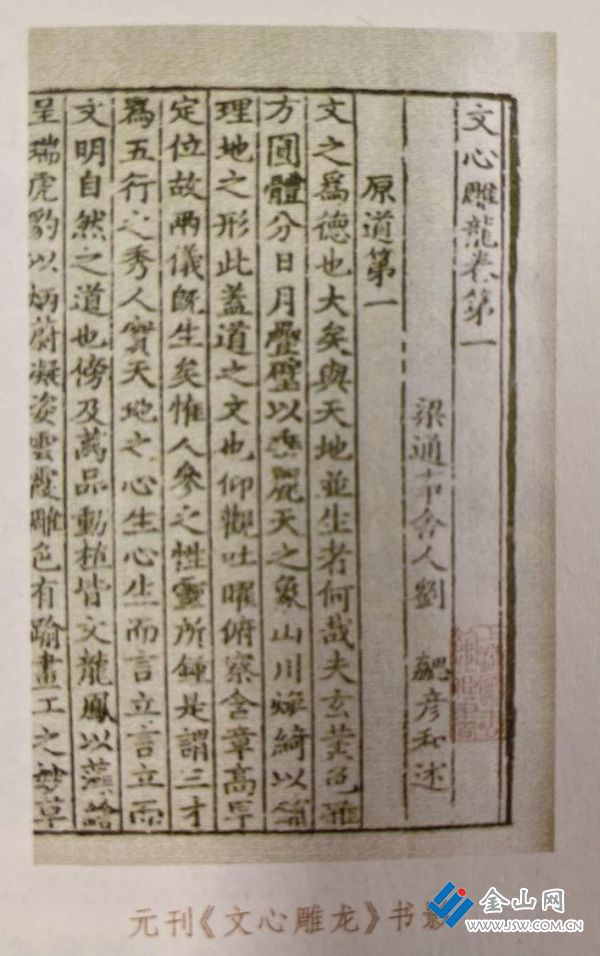 文心雕龍卷第一
梁通事舍人劉　勰彦和述
原道第一
文之爲德也大矣與天地並生者何哉夫玄黄色雜
方圓體分日月疊璧以垂麗天之象山川煥綺以鋪
理地之形此盖道之文也仰觀吐曜俯察含章髙卑
定位故兩儀旣生矣惟人參之性靈所鍾是謂三才
爲五行之秀人實天地之心生心生而言立言立而
文明自然之道也傍及萬品動植皆文龍鳳以藻繪
呈瑞虎豹以炳蔚凝姿雲霞雕色有踰畫工之妙草
元刊《文心雕龙》书
金山网
WWW.JSW.COM.CN